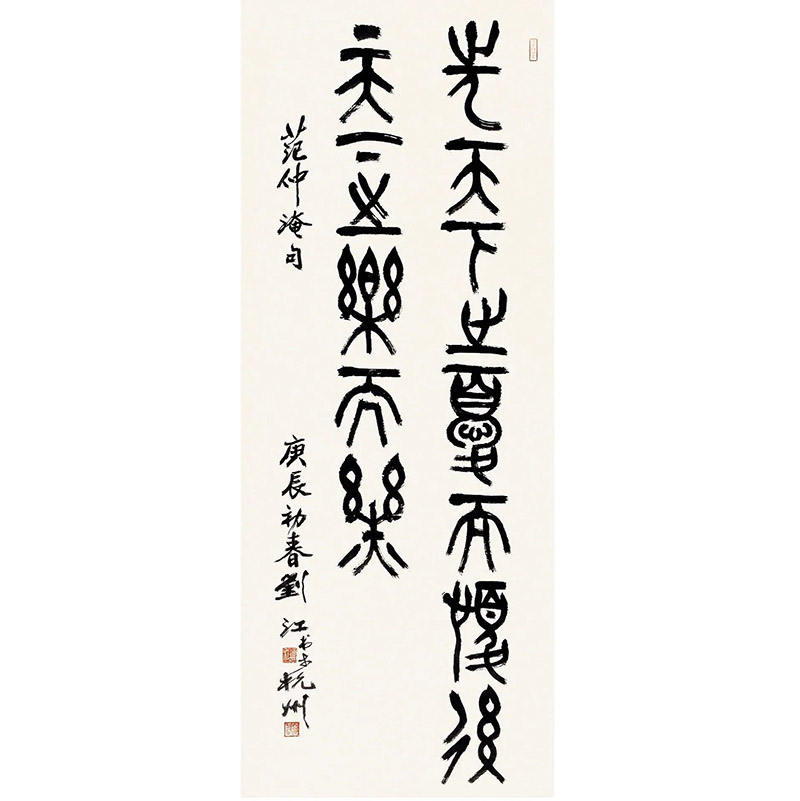 先天下之憂而憂後
天下之樂而樂
范仲淹句
庚辰初春劉江书于杭州